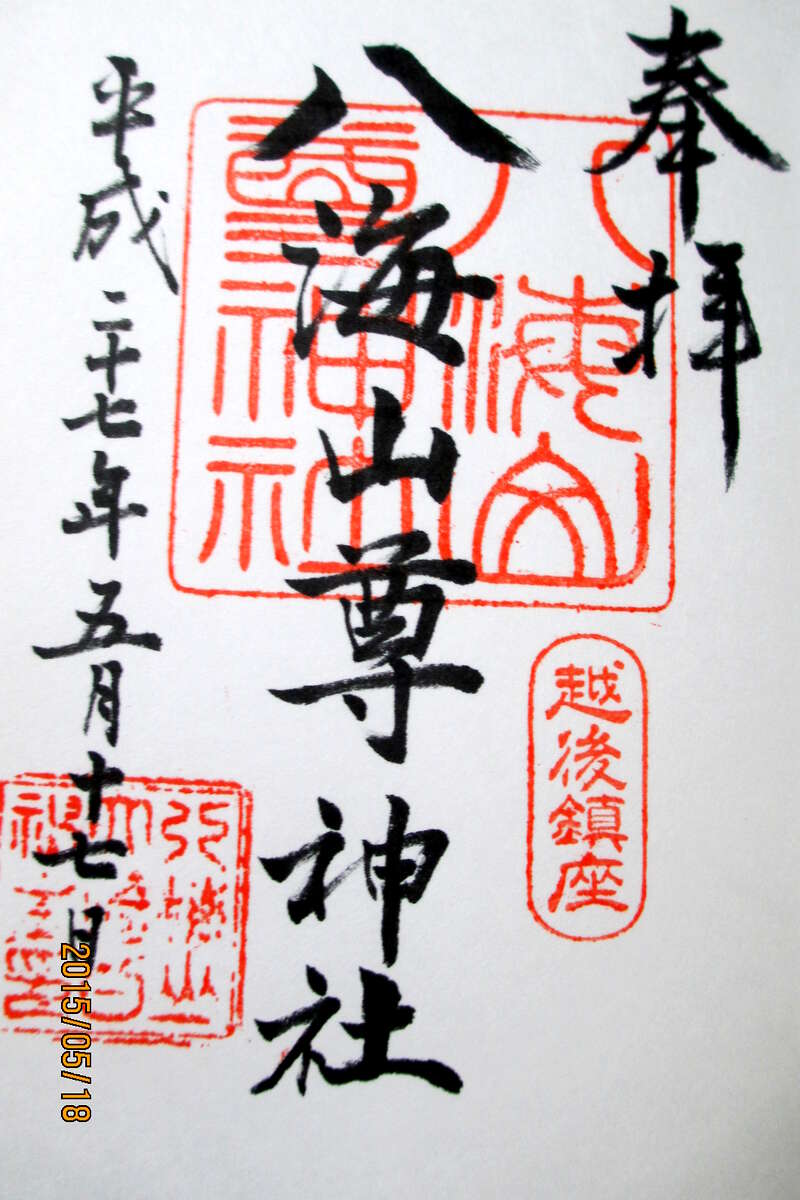 奉拝
八海山尊神社
平成二十七年五月十七日
八海山
尊神社
越後鎮座
2015/05/18